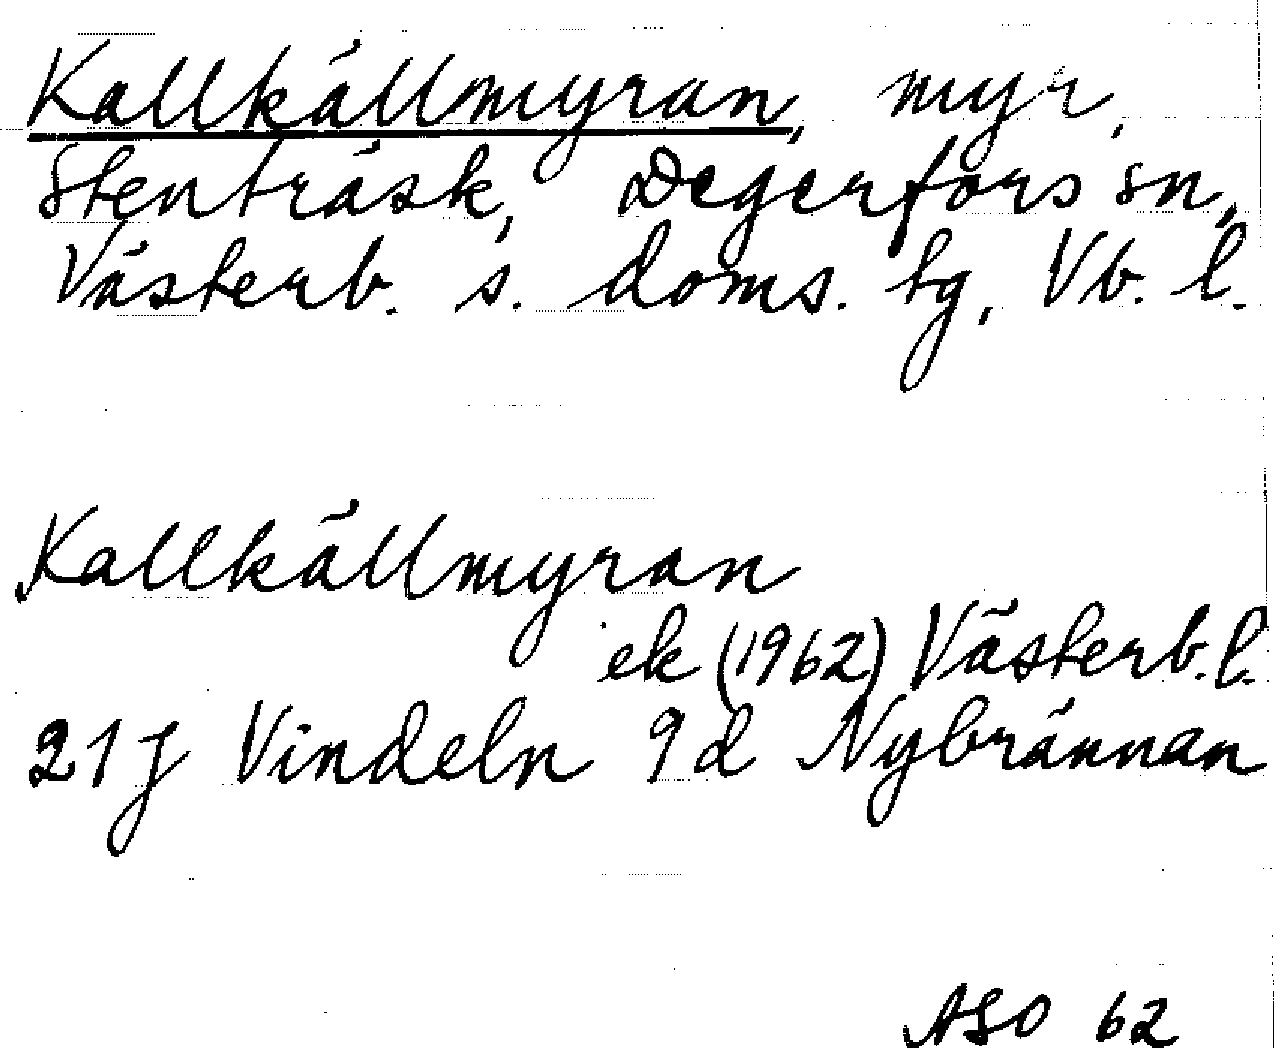 Kallkällmyran, myr,
Stenträsk, Degerfors sn,
Västerb. s. doms. tg, Vb. l.
Kallkällmyran
ek (1962) Västerb. l.
21J Vindeln 9d Nybrännan
ASO 62